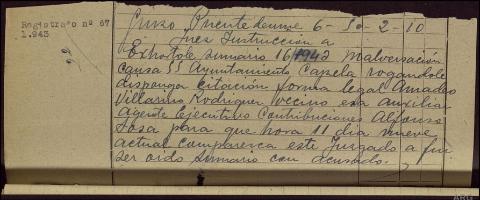 Registrado nº 67
1.943
Curso Puentedeume 6- 50-2-10
Juez Instrucción a
Exhortole sumario 16/1942 Malversación
causa SS Ayuntamiento Capela rogandole
disponga citación forma legal Amadeo
Villarino Rodriguez vecino esa auxiliar
Agente Ejecutivo Contribuciones Alfonso
Sosa para que hora 11 dia nueve
actual comparezca este Juzgado a fin
ser oido sumario con acusado.